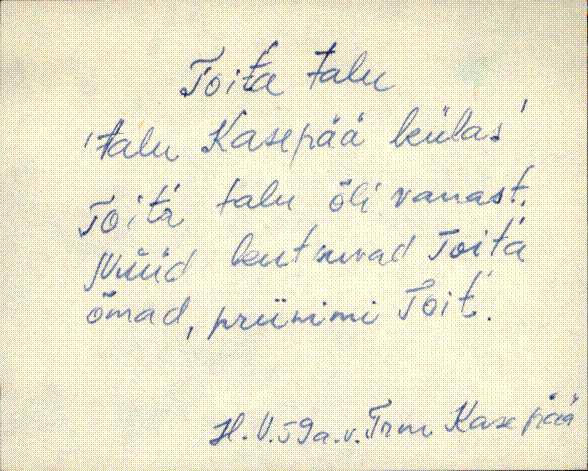 Toit́a talu
'talu Kasepää külas'
Toit́a talu õli vanast.
Nüüd kutsuvad Toit́a
õmad, priinimi Toit́.
H. V. 59 a. v. Trm Kasepää